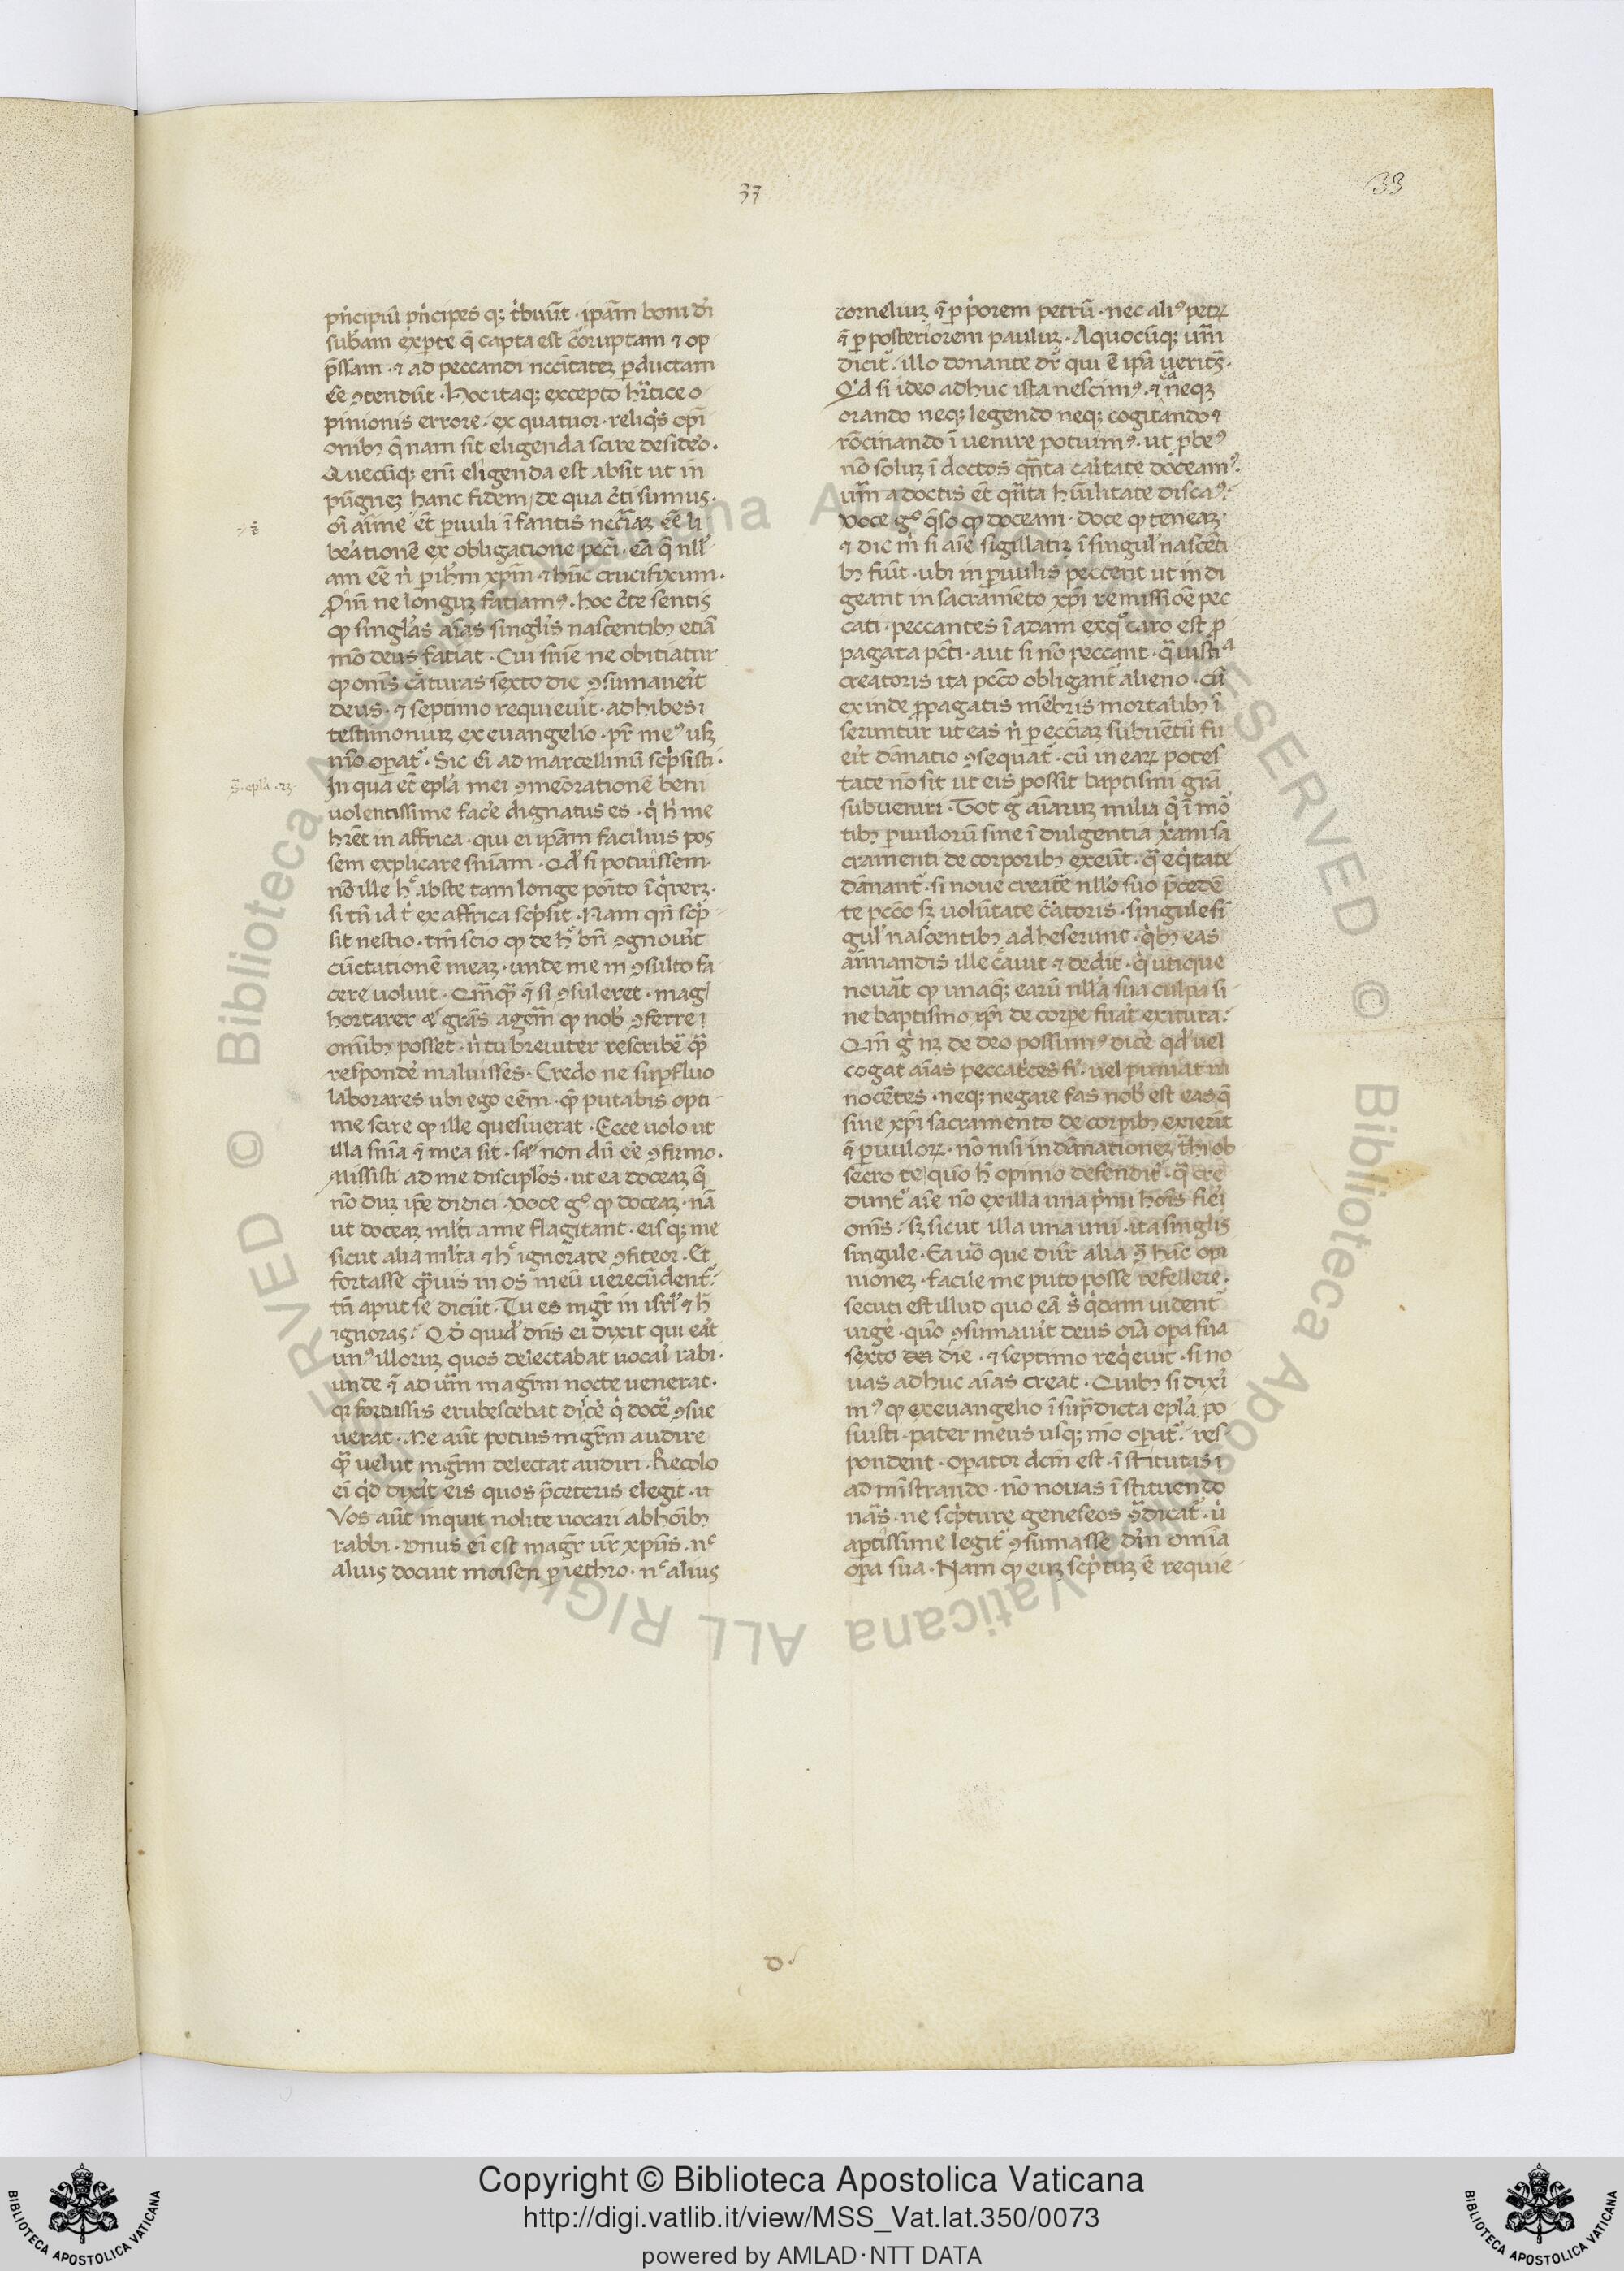 37
33
p̄ncipiū p̄ncipes qꝫ t̾buūt · ip̄am boni dī
sub̄am exp̱te q̄ capta est cōruptam ⁊ op
p̄ssam · ⁊ ad peccandi nccītateꝫ p̱ductam
eē ꝯtendūt · Hoc itaqꝫ excepto hr̄tice o
pinionis errore · ex quatuor · reliqͥs opi
onibꝫ q̄ nam sit eligenda scire desid̾o ·
Quecūqꝫ enī eligenda est absit ut in
pūgneꝫ hanc fidem de qua c̾ti sumus ·
oī aīme et̄ p̱uuli ī fantis nccīaꝫ eē li
b̾ationē ex obligatione pcci · eā q̄ nll̾
am eē n̾ p̱ ih̄m xp̄m ⁊ hūc crucifixum ·
Proin̄ ne longiꝫ fatiamꝰ · hoc c̾te sentis
ꝙ singl̾as aīas singl̾is nascentibꝫ etiā
mō deus fatiat · Cui sn̄ie ne obitiatur
ꝙ om̄s c̾aturas sexto die ꝯsumaueit
deus · ⁊ septimo requieuit · adhibes i
testimoniuꝫ ex euangelio · pr̄ meꝰ usqꝫ
mō opat᷑ · Sic eī ad marcellinū sc̾psisti ·
s̄ · epl̾a · 23
In qua et̄ epl̾a mei ꝯmeōrationē beni
uolentissime fac̾e dignatus es · qͥ h̾ me
hr̄et in affrica · qui ei ip̄am facilius pos
sem explicare sn̄iam · Qd̾ si potuissem
nō ille hͨ abste tam longe poīto īqͥrereꝫ ·
si tn̄ id t̾ ex affrica sc̾psit · Nam qn̄ sc̾p
sit nescio · tm̄ scio ꝙ de hͨ bn̄ ꝯgnouit
cūctationē meaꝫ · unde me in ꝯsulto fa
cere uoluit · Qm̄qᷓ ⁊ si ꝯsuleret · mag̾
hortarer ⁊ gr̄as agem̄ ꝙ nob̾ ꝯferre i
omībꝫ posset · n̾ tu breuiter rescribe qᷓ
responde maluisses · Credo ne supfluo
laborares ubi ego eēm · qᷓ putabis opti
me scire ꝙ ille quesiuerat · Ecce uolo ut
illa sn̄ia ⁊ mea sit · s̄ non dū eē ꝯfirmo ·
Missisti ad me discipl̾os · ut ea doceaꝫ q̄
nō duꝫ ip̄e didici · Doce gͦ ꝙ doceaꝫ · nā
ut doceaꝫ ml̾ti a me flagitant · eisqꝫ me
sicut alia ml̾ta ⁊ hͨ ignorare ꝯfiteor · Et
fortasse qᷓuis in os meū uerecūdent᷑ ·
tn̄ aput se dicūt · Tu es mgr̄ in isrl̾ ⁊ h̄
ignoras · Qd̾ quid̾ dn̄s ei dixit qui eat
unꝰ illoruꝫ quos delectabat uocai rabi ·
unde ⁊ ad um̄ magrm̄ nocte uenerat ·
qꝛ fortassis erubescebat dic̾e qͥ doce ꝯsue
uerat · Me aūt potius mgrm̄ audire
qᷓ uelut mgrm̄ delectat audiri · Recolo
ei qͦd dixit eis quos p̄ceteris elegit ·
Vos aūt inquit nolite uocari ab hōībꝫ
rabbi · Unus eī est magr̄ ur̄ xp̄us · nͨ
alius docuit moisen p̱ iethro · nͨ alius
corneliuꝫ ⁊ p̱ p̾orem petrū · nec aliꝰ petꝝ
⁊ p̱ posteriorem pauluꝫ · A quocūqꝫ um̄
dicit᷑ · illo donante dr̄ qui ē ip̄a uerits̄ ·
Qd̾ si ideo adhuc ista nescimꝰ · ⁊ ea neqꝫ
orando neqꝫ legendo neqꝫ cogitando ⁊
rōcinando ī uenire potuimꝰ · ut ꝓbeꝰ
nō soluꝫ ī doctos qn̄ta caītate doceamꝰ ·
um̄ a doctis et̄ qn̄ta hūilitate discaꝰ ·
Doce gͦ q̄so ꝙ doceam · doce ꝙ teneaꝫ ·
⁊ dic m̾ si aīe sigillatiꝫ ī singul̾ nascēti
bꝫ fiūt · ubi in p̱uulis peccent ut indi
geant in sacramēto xp̄i remissioē pec
cati · peccantes ī adam ex qͦ caro est ꝓ
pagata pcti · aut si nō peccant · qᷓ iustiᵃ
creatoris ita pcco obligant᷑ alieno · cū
exinde ꝓpagatis mēbris mortalibꝫ ī
seruntur ut eas n̾ p̱ ecc̄iaꝫ subuētū fu
eit dānatio ꝯsequat᷑ · cū in eaꝝ potes
tate nō sit ut eis possit baptismi gr̄a
subueniri · Tot g̾ aīaruꝫ milia q̄ ī mo
tibꝫ p̱uulorū sine ī dulgentia xani sa
cramenti de corporibꝫ exeūt · qᷓ eqͥtate
dānant᷑ · si noue create nllo suo p̄cedē
te pcco sꝫ uolūtate c̾atoris · singule sī
gul̾ nascentibꝫ adheserunt · qͥbꝫ eas
aīmandis ille c̾auit ⁊ dedit · qͥ utique
nouat ꝙ unaqꝫ earū nll̾a sua culpa si
ne baptismo xp̄i de corpe fuat exitura ·
Qm̄ g̾ nꝫ de deo possumꝰ dice qd̾ uel
cogat aīas peccat̾ces fi · uel puniat in
nocētes · neqꝫ negare fas nob̾ est eas q̄
sine xp̄i sacramento de corpibꝫ exierīt
⁊ p̱uuloꝝ · nō nisi in dānationeꝫ t̾hi ob
secro te quō h̄ opinio defendit᷑ · qᷓ cre
dunt᷑ aīe nō ex illa una p̾mi hoīs fiei
om̄s · sꝫ sicut illa una uni · ita singl̾is
singule · Ea uo que dnr̄ alia ꝯ hāc opi
nioneꝫ · facile me puto posse refellere ·
secuti est illud quo eā s̾ qͥdam uident᷑
urge · quō ꝯsumauit deus oīa opa sua
sexto die · ⁊ septimo reqͥeuit · si no
uas adhuc aīas creat · Quibꝫ si dixi
mꝰ ꝙ ex euangelio ī sup̄dicta epl̾a po
suisti · pater meus usqꝫ mō opat᷑ · res
pondent · operator dcm̄ est · ī stitutas i
ad mīstrando · nō nouas ī stituendo
nās · ne sc̾pture geneseos ꝯdicat᷑ · u̾
aptissime legit᷑ ꝯsumasse dm̄ omīa
opa sua · Nam ꝙ euꝫ sc̾ptuꝫ ē requie
D
Copyright © Biblioteca Apostolica Vaticana
http://digi.vatlib.it/view/MSS_Vat.lat.350/0073
powered by AMLAD·NTT DATA